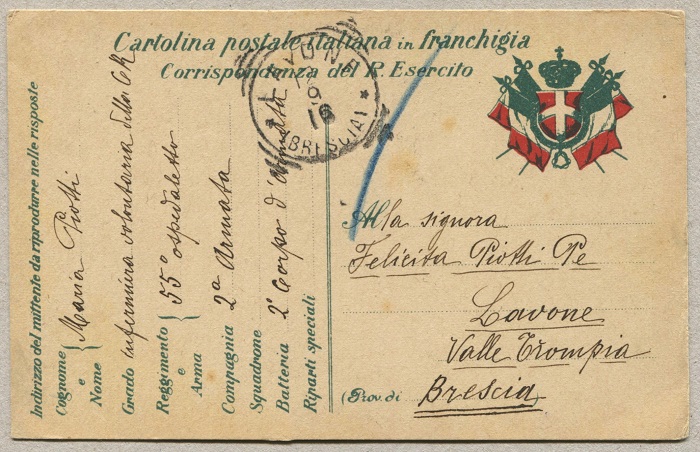 Cartolina postale italiana in franchigia
Corrispondenza del R. Esercito
LAVONE
19
16
(BRESCIA)
Alla signora
Felicita Piotti Pe
Lavone
Valle Trompia
(Prov. di Brescia
Indirizzo del mittente da riprodurre nelle risposte
Cognome e Nome { Maria Piotti
Grado infermiera volontaria della CR
Reggimento e Arma { 55º ospedaletto
Compagnia 2ª Armata
Squadrone
Batteria 2º Corpo d'Armata
Riparti speciali